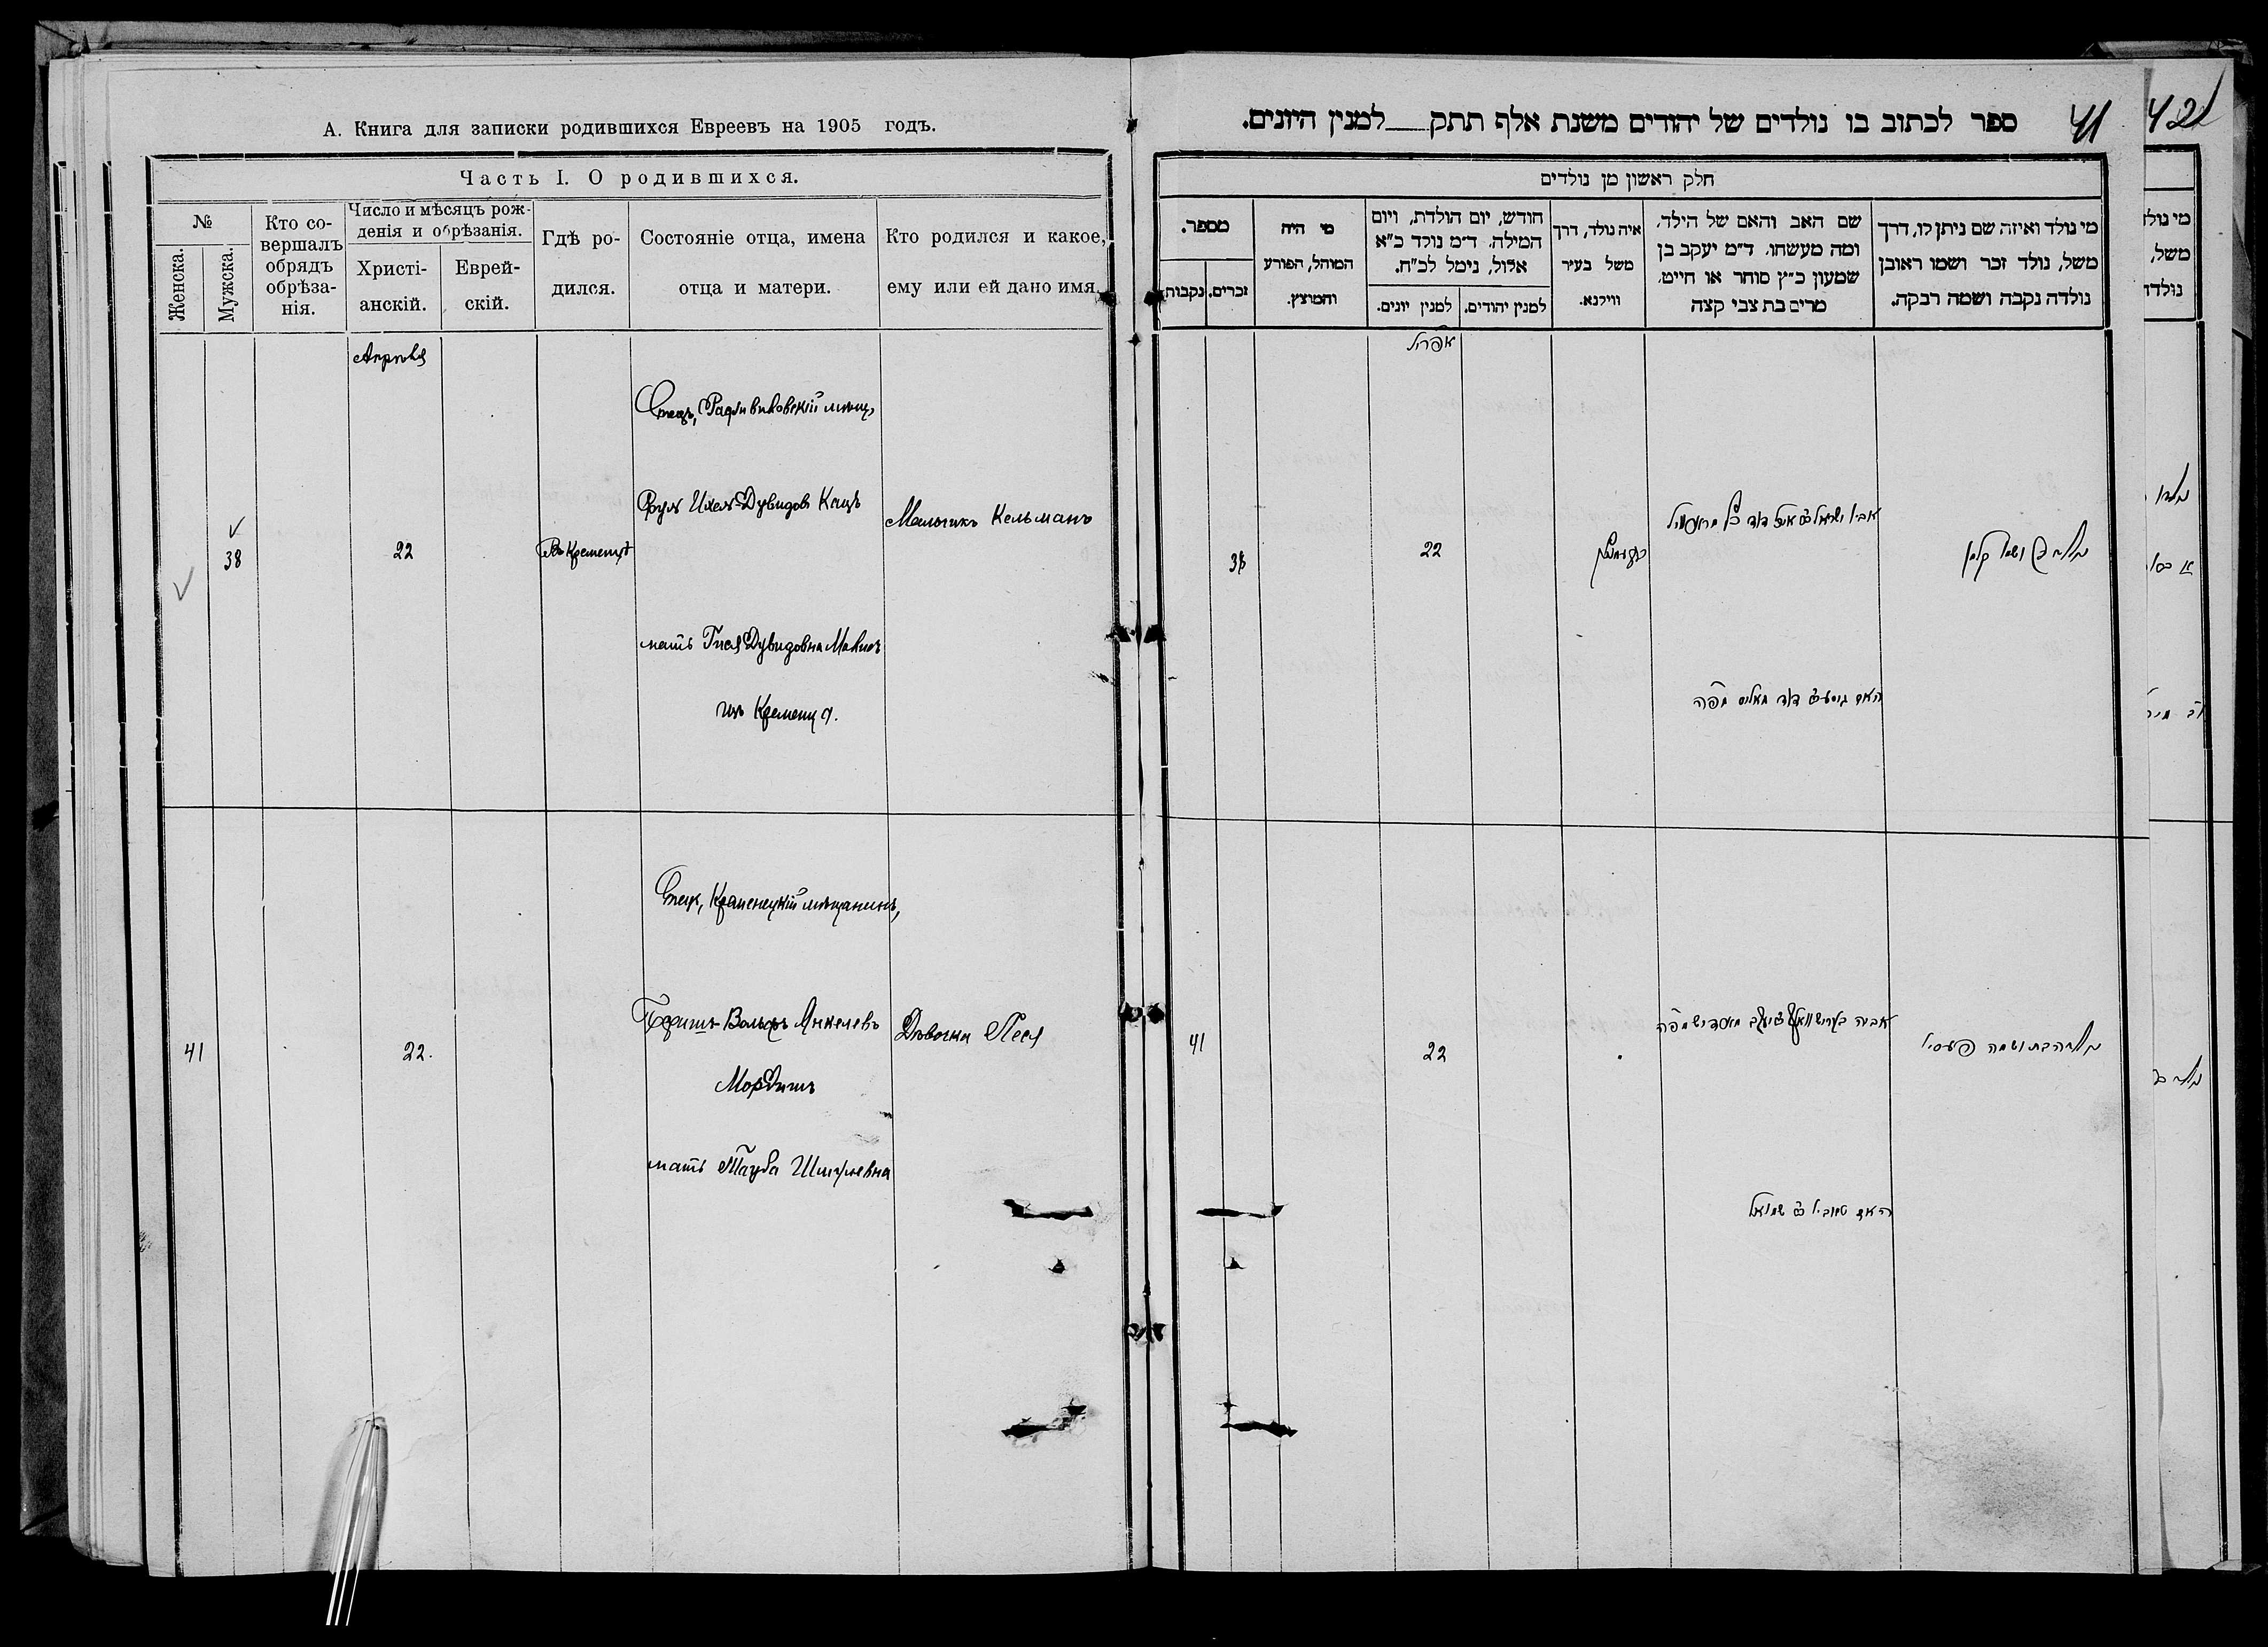 А. Книга для записки родившихся Евреевъ на 1905 годъ.
Часть I. О родившихся.
№
Женска.
Мужска.
Кто со-
вершалъ
обрядъ
обрѣза-
нія.
Число и мѣсяцъ рож-
денія и обрѣзанія.
Христі-
анскій.
Еврей-
скій.
Гдѣ ро-
дился.
Состояніе отца, имена
отца и матери.
Кто родился и какое,
ему или ей дано имя.
Апрѣля
38
22
Въ Кременцѣ
Отецъ, Радзивиловскій мѣщ,
Сруль Ихель Дувидовъ Кацъ
мать Гися Дувидовна
изъ Кременца.
Мальчикъ Кельманъ
41
22.
Отецъ, Кременецкій мѣщанинъ,
Беришъ-Вольфъ Янкелевъ
Мордишъ
мать Тауба Шмулевна
Дѣвочка Песя
ספר לכתוב בו נולדים של יהודים משנת אלף תתק למנין היונים.
41
42
חלק ראשון מן נולדים
מספר.
נקבות
זכרים.
מי היה
המוהל, הפורע
והמוצץ.
חודש, יום הולדת, ויום
המילה. ד״מ נולד כ״א
אלול, נימל לכ״ח.
למנין יונים.
למנין יהודים.
איה נולד, דרך
משל בעיר
ווילנא.
שם האב והאם של הילד.
ומה מעשהו. ד״מ יעקב בן
שמעון כ״ץ סוחר או חייט.
מרים בת צבי קצה
מי נולד ואיזה שם ניתן לו, דרך
משל, נולד זכר ושמו ראובן
נולדה נקבה ושמה רבקה.
אפריל
38
22
נולד בן ושמו קלמן
41
22
האם טויבא בת שמואל
נולדה בת ושמה פעסיא